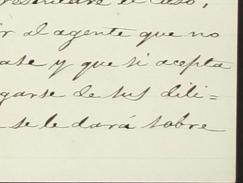 el caso,
al agente que no
y que si acepta
garse de sus dili-
se le dará sobre